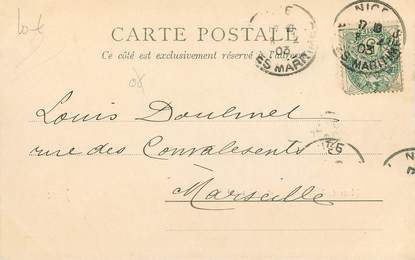 CARTE POSTALE
Ce côté est exclusivement réservé à l'adresse
NICE
03
ES MARIT
Louis Doulmet
rue des Convalesents
Marseille